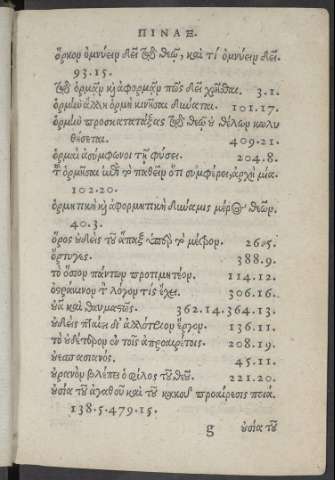 ΠΙΝΑΞ.
ὅρκον ὀμνύειν δεῖ τῷ θεῷ, καὶ τί ὀμνύειν δεῖ.
93.15.
τῷ ὁρμᾷν κὴ ἀφορμᾷν πῶς δεῖ χρῆσθαι. 3.1.
ὁρμὴν ἄλλη ὁρμὴ κινῆσαι δύναται. 101.17.
ὁρμὴν προσκατατάξας τῷ θεῷ ὁ θέλων κωλυ
θήσεται. 409.21.
ὁρμαὶ ἀσύμφωνοι τῇ φύσει. 204.8.
τ ὁρμῆσαι τὸ παθεῖν ὅτι συμφέρει, ἀρχὴ μία.
102.20.
ὁρμητικὴ κὴ ἀφορμητικὴ δύναμις μέρος θεῶν.
40.3.
ὅρος οὐδεὶς τοῦ ἅπαξ ὑπὲρ τὸ μέτρον. 265.
ὄρτυγες. 388.9.
τὸ ὅσιον πάντων προτιμητέον. 114.12.
ὀστράκινον τ λόγον τίς ἔχει. 306.16.
οὐᾶ καὶ θαυμαστῶς. 362.14.364.13.
οὐδεὶς πταίει δι' ἀλλότριον ἔργον. 136.11.
τὸ οὐδέτερον ἐν τοῖς ἀπροαιρέτοις. 208.19.
οὐεσπασιανός. 45.11.
οὐρανὸν βλέπει ὁ φίλος τοῦ θεοῦ. 221.20.
οὐσία τοῦ ἀγαθοῦ καὶ τοῦ κακοῦ προαίρεσις ποιά.
138.5.479.15.
g οὐσία τοῦ